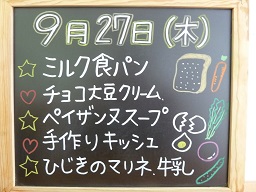 9月27日(木)
ミルク食パン
チョコ大豆クリーム
ペイザンヌスープ
手作りキッシュ
ひじきのマリネ、牛乳